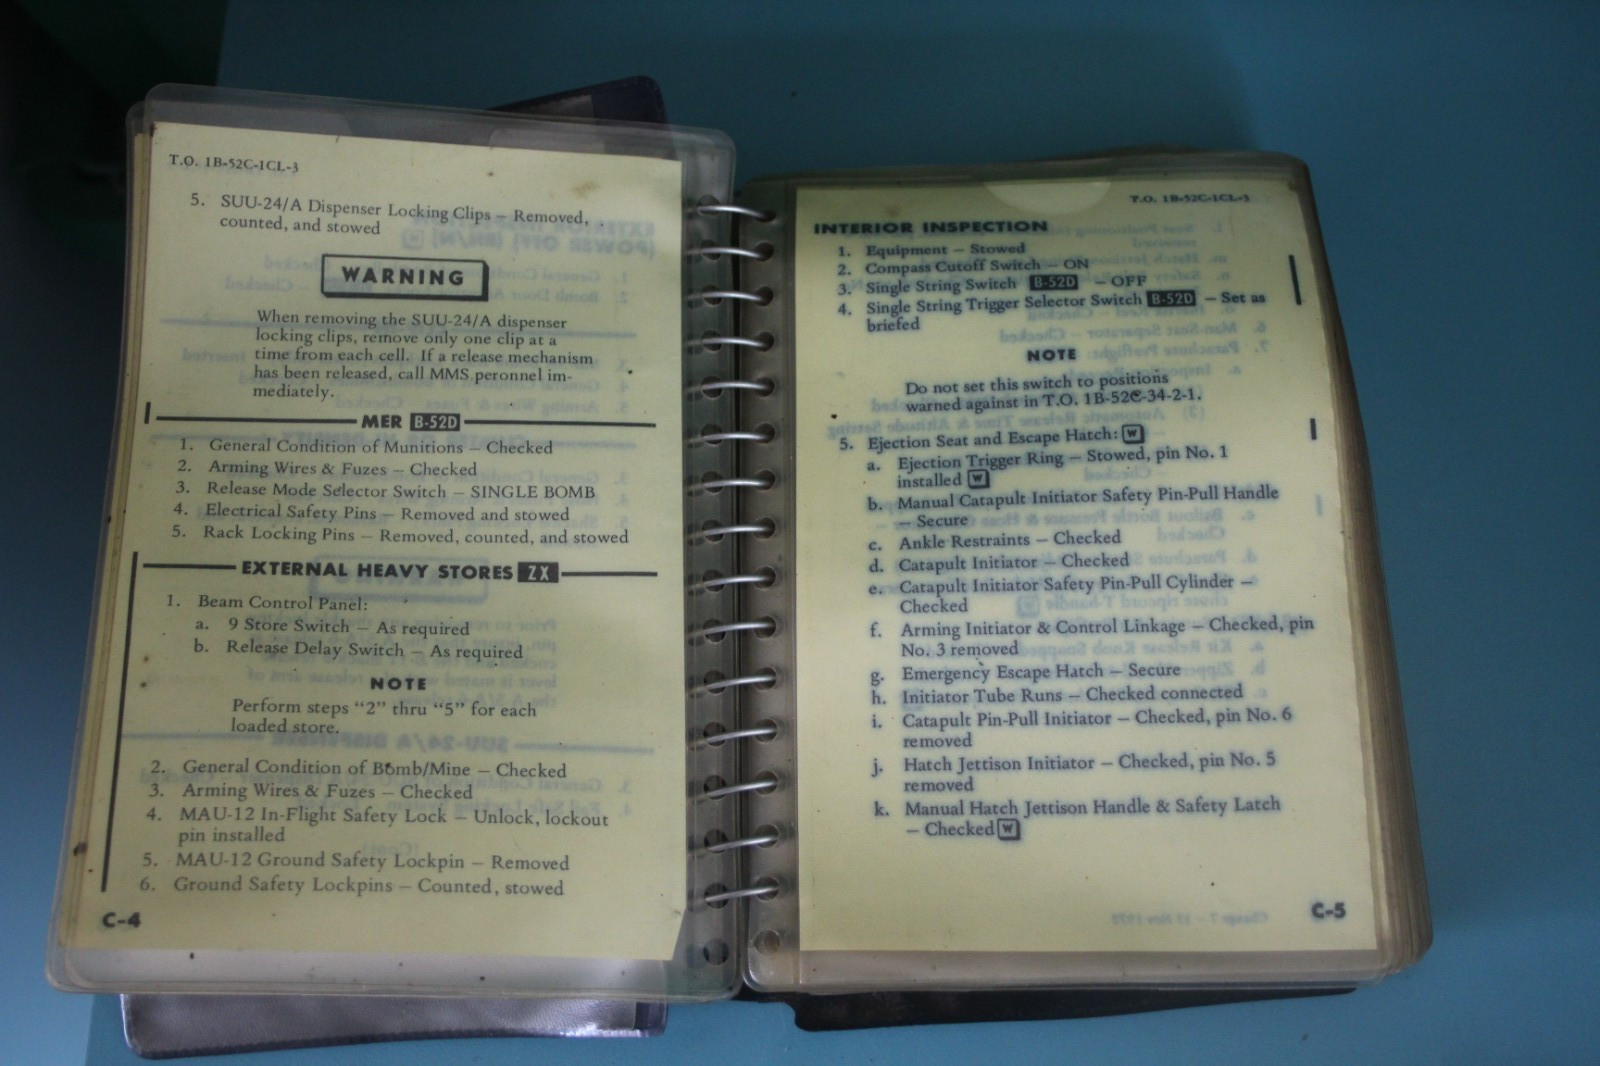 T.O. 1B-52C-1CL-3
5. SUU-24/A Dispenser Locking Clips – Removed,
counted, and stowed
WARNING
When removing the SUU-24/A dispenser
locking clips, remove only one clip at a
time from each cell. If a release mechanism
has been released, call MMS peronnel im-
mediately.
MER B-52D
1. General Condition of Munitions – Checked
2. Arming Wires & Fuzes – Checked
3. Release Mode Selector Switch – SINGLE BOMB
4. Electrical Safety Pins – Removed and stowed
5. Rack Locking Pins – Removed, counted, and stowed
EXTERNAL HEAVY STORES ZX
1. Beam Control Panel:
a. 9 Store Switch – As required
b. Release Delay Switch – As required
NOTE
Perform steps “2” thru “5” for each
loaded store.
2. General Condition of Bomb/Mine – Checked
3. Arming Wires & Fuzes – Checked
4. MAU-12 In-Flight Safety Lock – Unlock, lockout
pin installed
5. MAU-12 Ground Safety Lockpin – Removed
6. Ground Safety Lockpins – Counted, stowed
C-4
T.O. 1B-52C-1CL-3
INTERIOR INSPECTION
1. Equipment – Stowed
2. Compass Cutoff Switch – ON
3. Single String Switch B-52D – OFF
4. Single String Trigger Selector Switch B-52D – Set as
briefed
NOTE
Do not set this switch to positions
warned against in T.O. 1B-52C-34-2-1.
5. Ejection Seat and Escape Hatch: W
a. Ejection Trigger Ring – Stowed, pin No. 1
installed W
b. Manual Catapult Initiator Safety Pin-Pull Handle
– Secure
c. Ankle Restraints – Checked
d. Catapult Initiator – Checked
e. Catapult Initiator Safety Pin-Pull Cylinder –
Checked
f. Arming Initiator & Control Linkage – Checked, pin
No. 3 removed
g. Emergency Escape Hatch – Secure
h. Initiator Tube Runs – Checked connected
i. Catapult Pin-Pull Initiator – Checked, pin No. 6
removed
j. Hatch Jettison Initiator – Checked, pin No. 5
removed
k. Manual Hatch Jettison Handle & Safety Latch
– Checked W
C-5